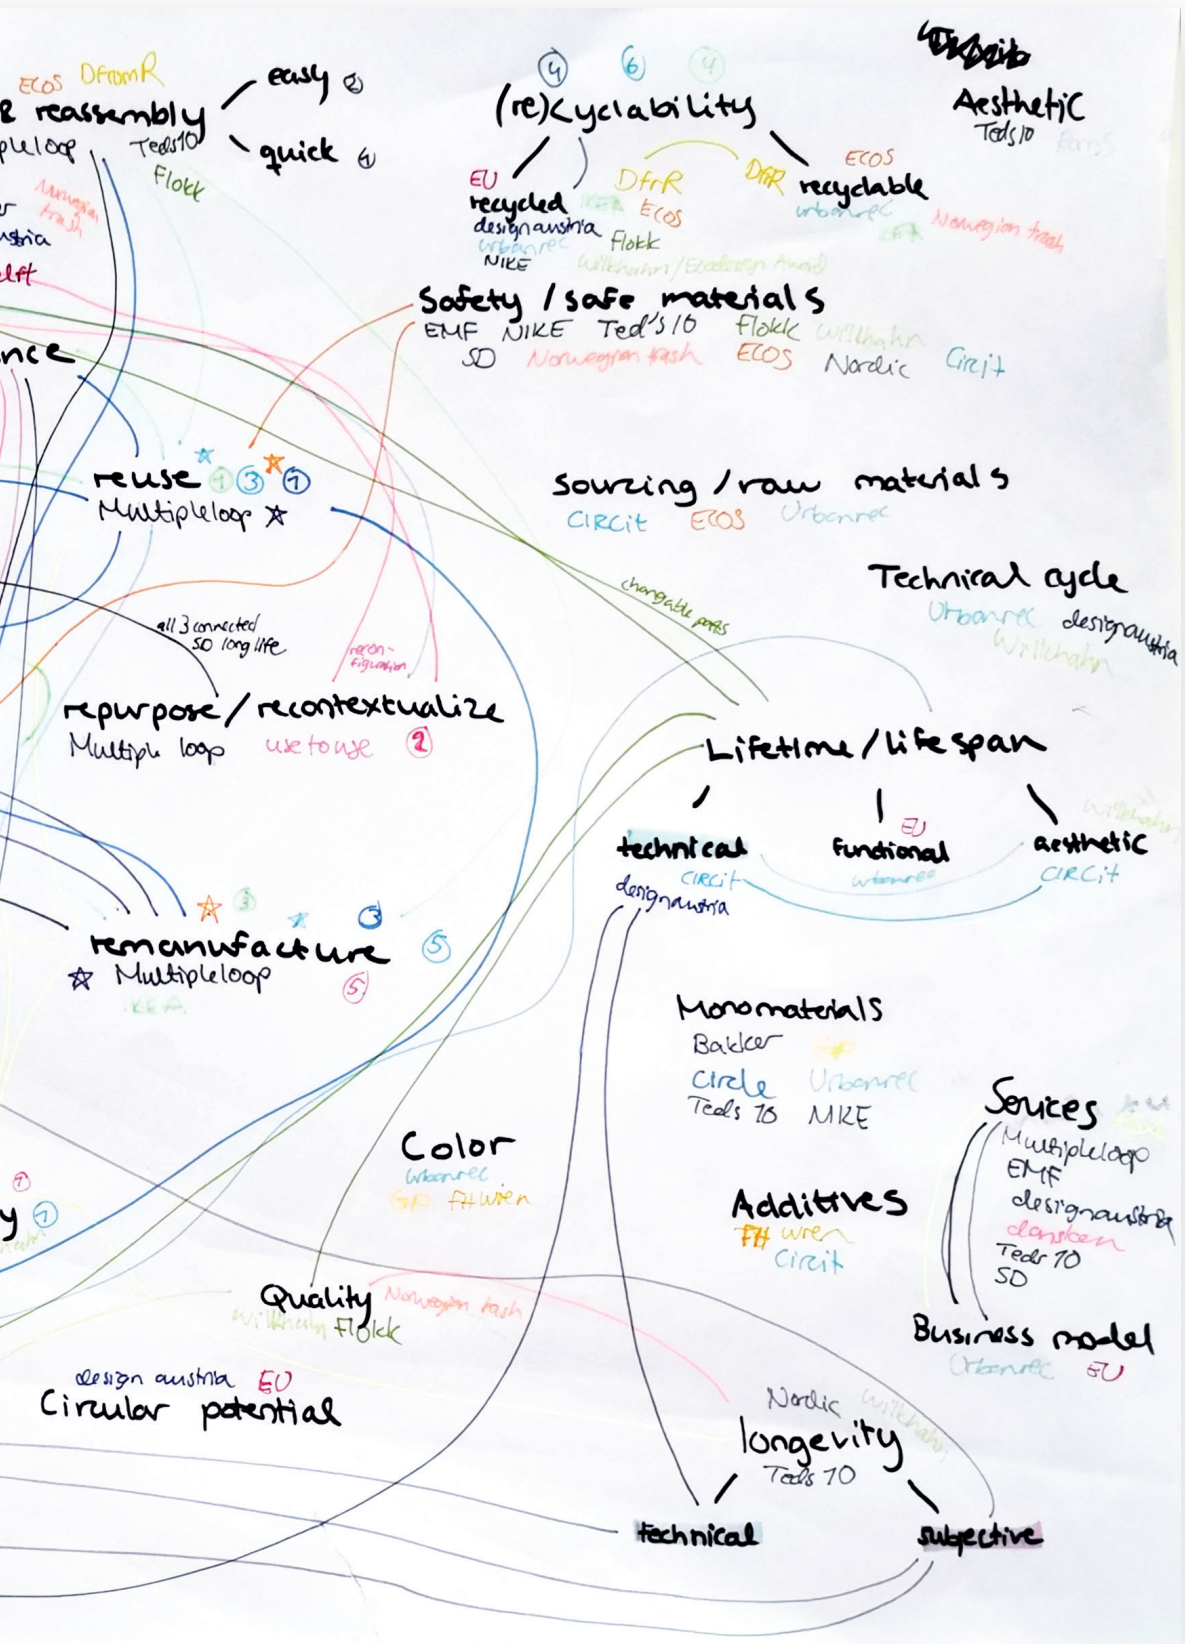 ECOS DFromR
& reassembly
easy 2
quick 1
Teds10
Flokk
Norwegian
trash
4 6 4
(re)cyclability
EU
recycled
designaustria
urbanrec
NIKE
IKEA
DfrR
ECOS
Flokk
Willkhahn/Ecodesign Award
DfrR
ECOS
recyclable
urbanrec
Norwegian trash
Aesthetic
Teds10
Safety / safe materials
EMF NIKE Ted's 10 Flokk Willkhahn
SD Norwegian trash ECOS Nordic Circit
reuse 1 3 1
Multipleloop
sourcing / raw materials
CIRCit ECOS Urbanrec
Technical cycle
Urbanrec designaustria
Willkhahn
changable parts
all 3 connected
SD long life
recon-
figuration
repurpose / recontextualize
Multiple loop use to use 2
Lifetime / lifespan
technical
CIRCit
designaustria
EU
Functional
urbanrec
Willkhahn
aesthetic
CIRCit
3 3
remanufacture 5
Multipleloop 5
IKEA
Monomaterials
Bakker
Circle Urbanrec
Teds 10 NIKE
Color
Urbanrec
FH wien
Additives
FH wien
Circit
Services
Multipleloop
EMF
designaustria
dansken
Teds 10
SD
Business model
Urbanrec EU
Quality Norwegian trash
Willkhahn Flokk
design austria EU
Circular potential
Nordic Willkhahn
longevity
Teds 10
technical subjective